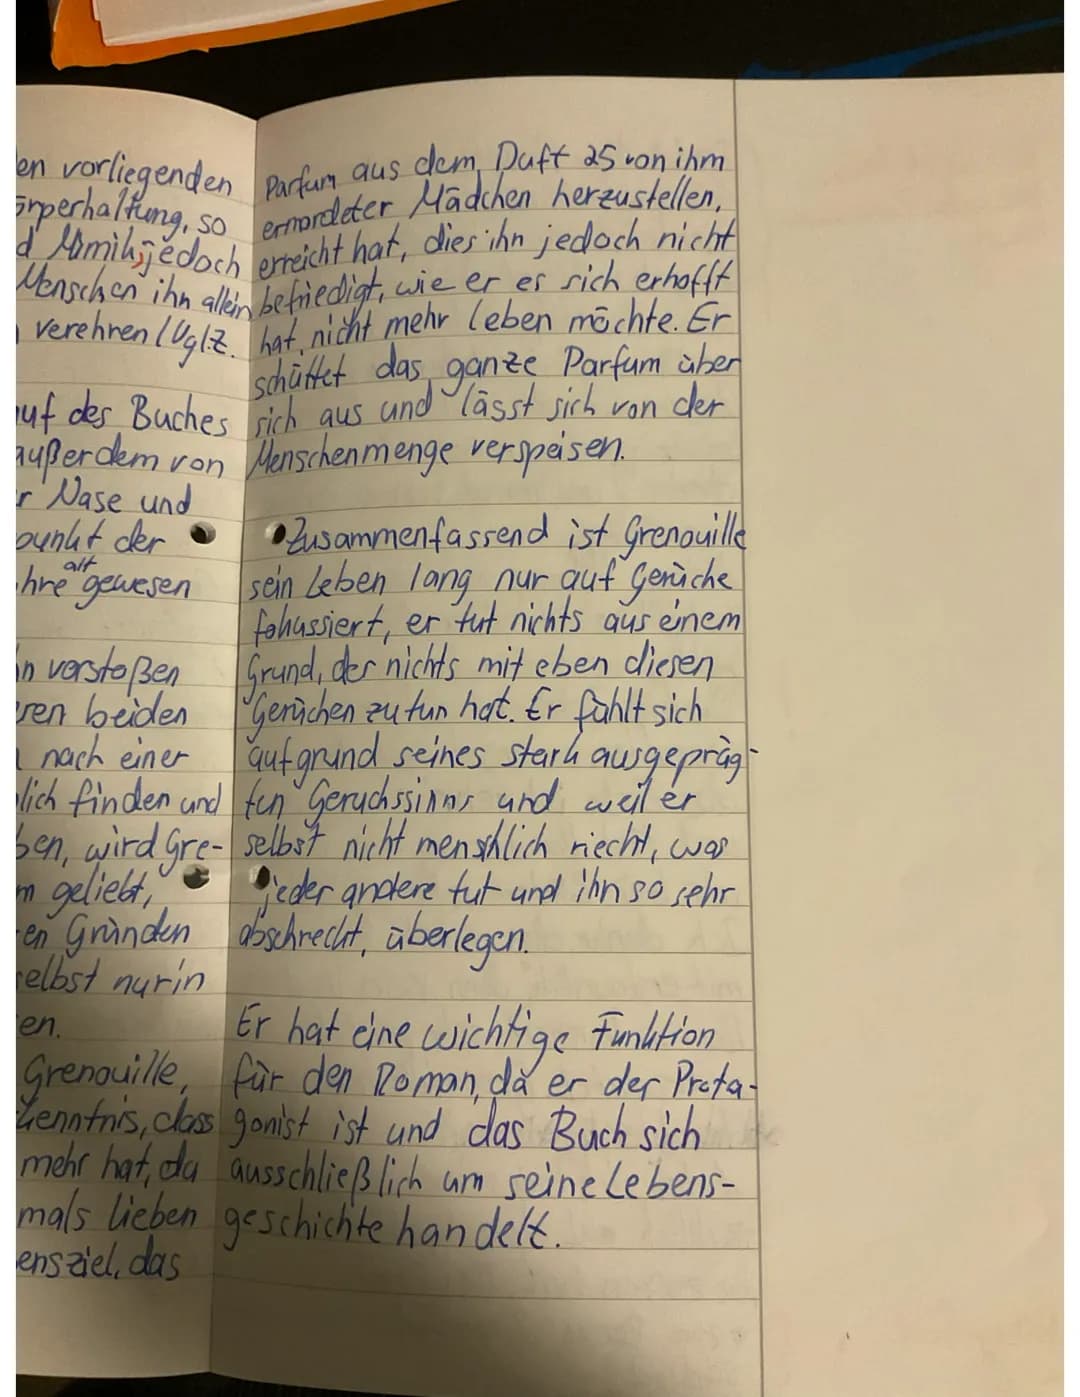 en vorliegenden
örperhaltung, so
d Mimik, jedoch
Menschen ihn allein
verehren (Vgl. Z.
auf des Buches
außerdem von
r Nase und
punkt der
alt
hre gewesen
n verstoßen
ren beiden
nach einer
lich finden und
ben, wird Gre-
m geliebt,
en Gründen
selbst nur in
en.
Grenouille,
kenntnis, dass
mehr hat, da
mals lieben
ensziel, das
Parfum aus dem Duft 25 von ihm
ermordeter Mädchen herzustellen,
erreicht hat, dies ihn jedoch nicht
befriedigt, wie er es sich erhofft
hat, nicht mehr leben möchte. Er
schüttet das ganze Parfum über
sich aus und lässt sich von der
Menschenmenge verspeisen.
Zusammenfassend ist Grenouille
sein Leben lang nur auf Gerüche
fokussiert, er tut nichts aus einem
Grund, der nichts mit eben diesen
Gerüchen zu tun hat. Er fühlt sich
aufgrund seines stark ausgepräg-
ten Geruchssinns und weil er
selbst nicht menschlich riecht, was
jeder andere tut und ihn so sehr
abschreckt, überlegen.
Er hat eine wichtige Funktion
für den Roman, da er der Prota-
gonist ist und das Buch sich
ausschließlich um seine Lebens-
geschichte handelt.